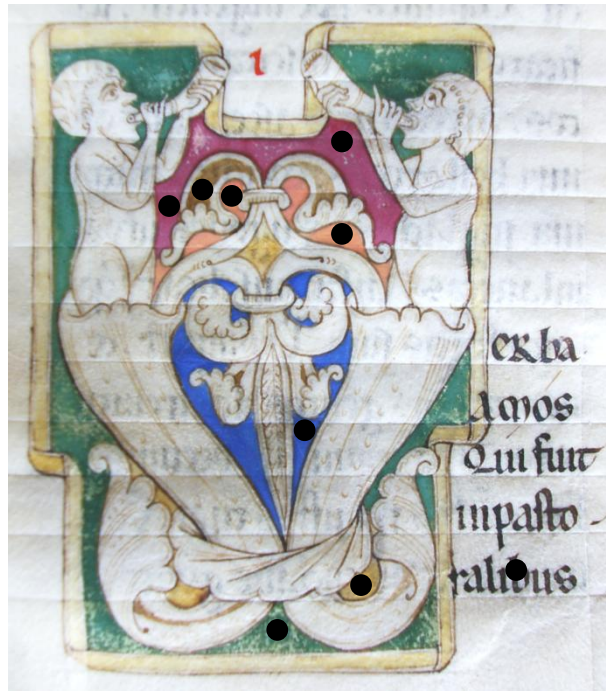 1
erba
amos
Qui fuit
in pasto-
ralibus